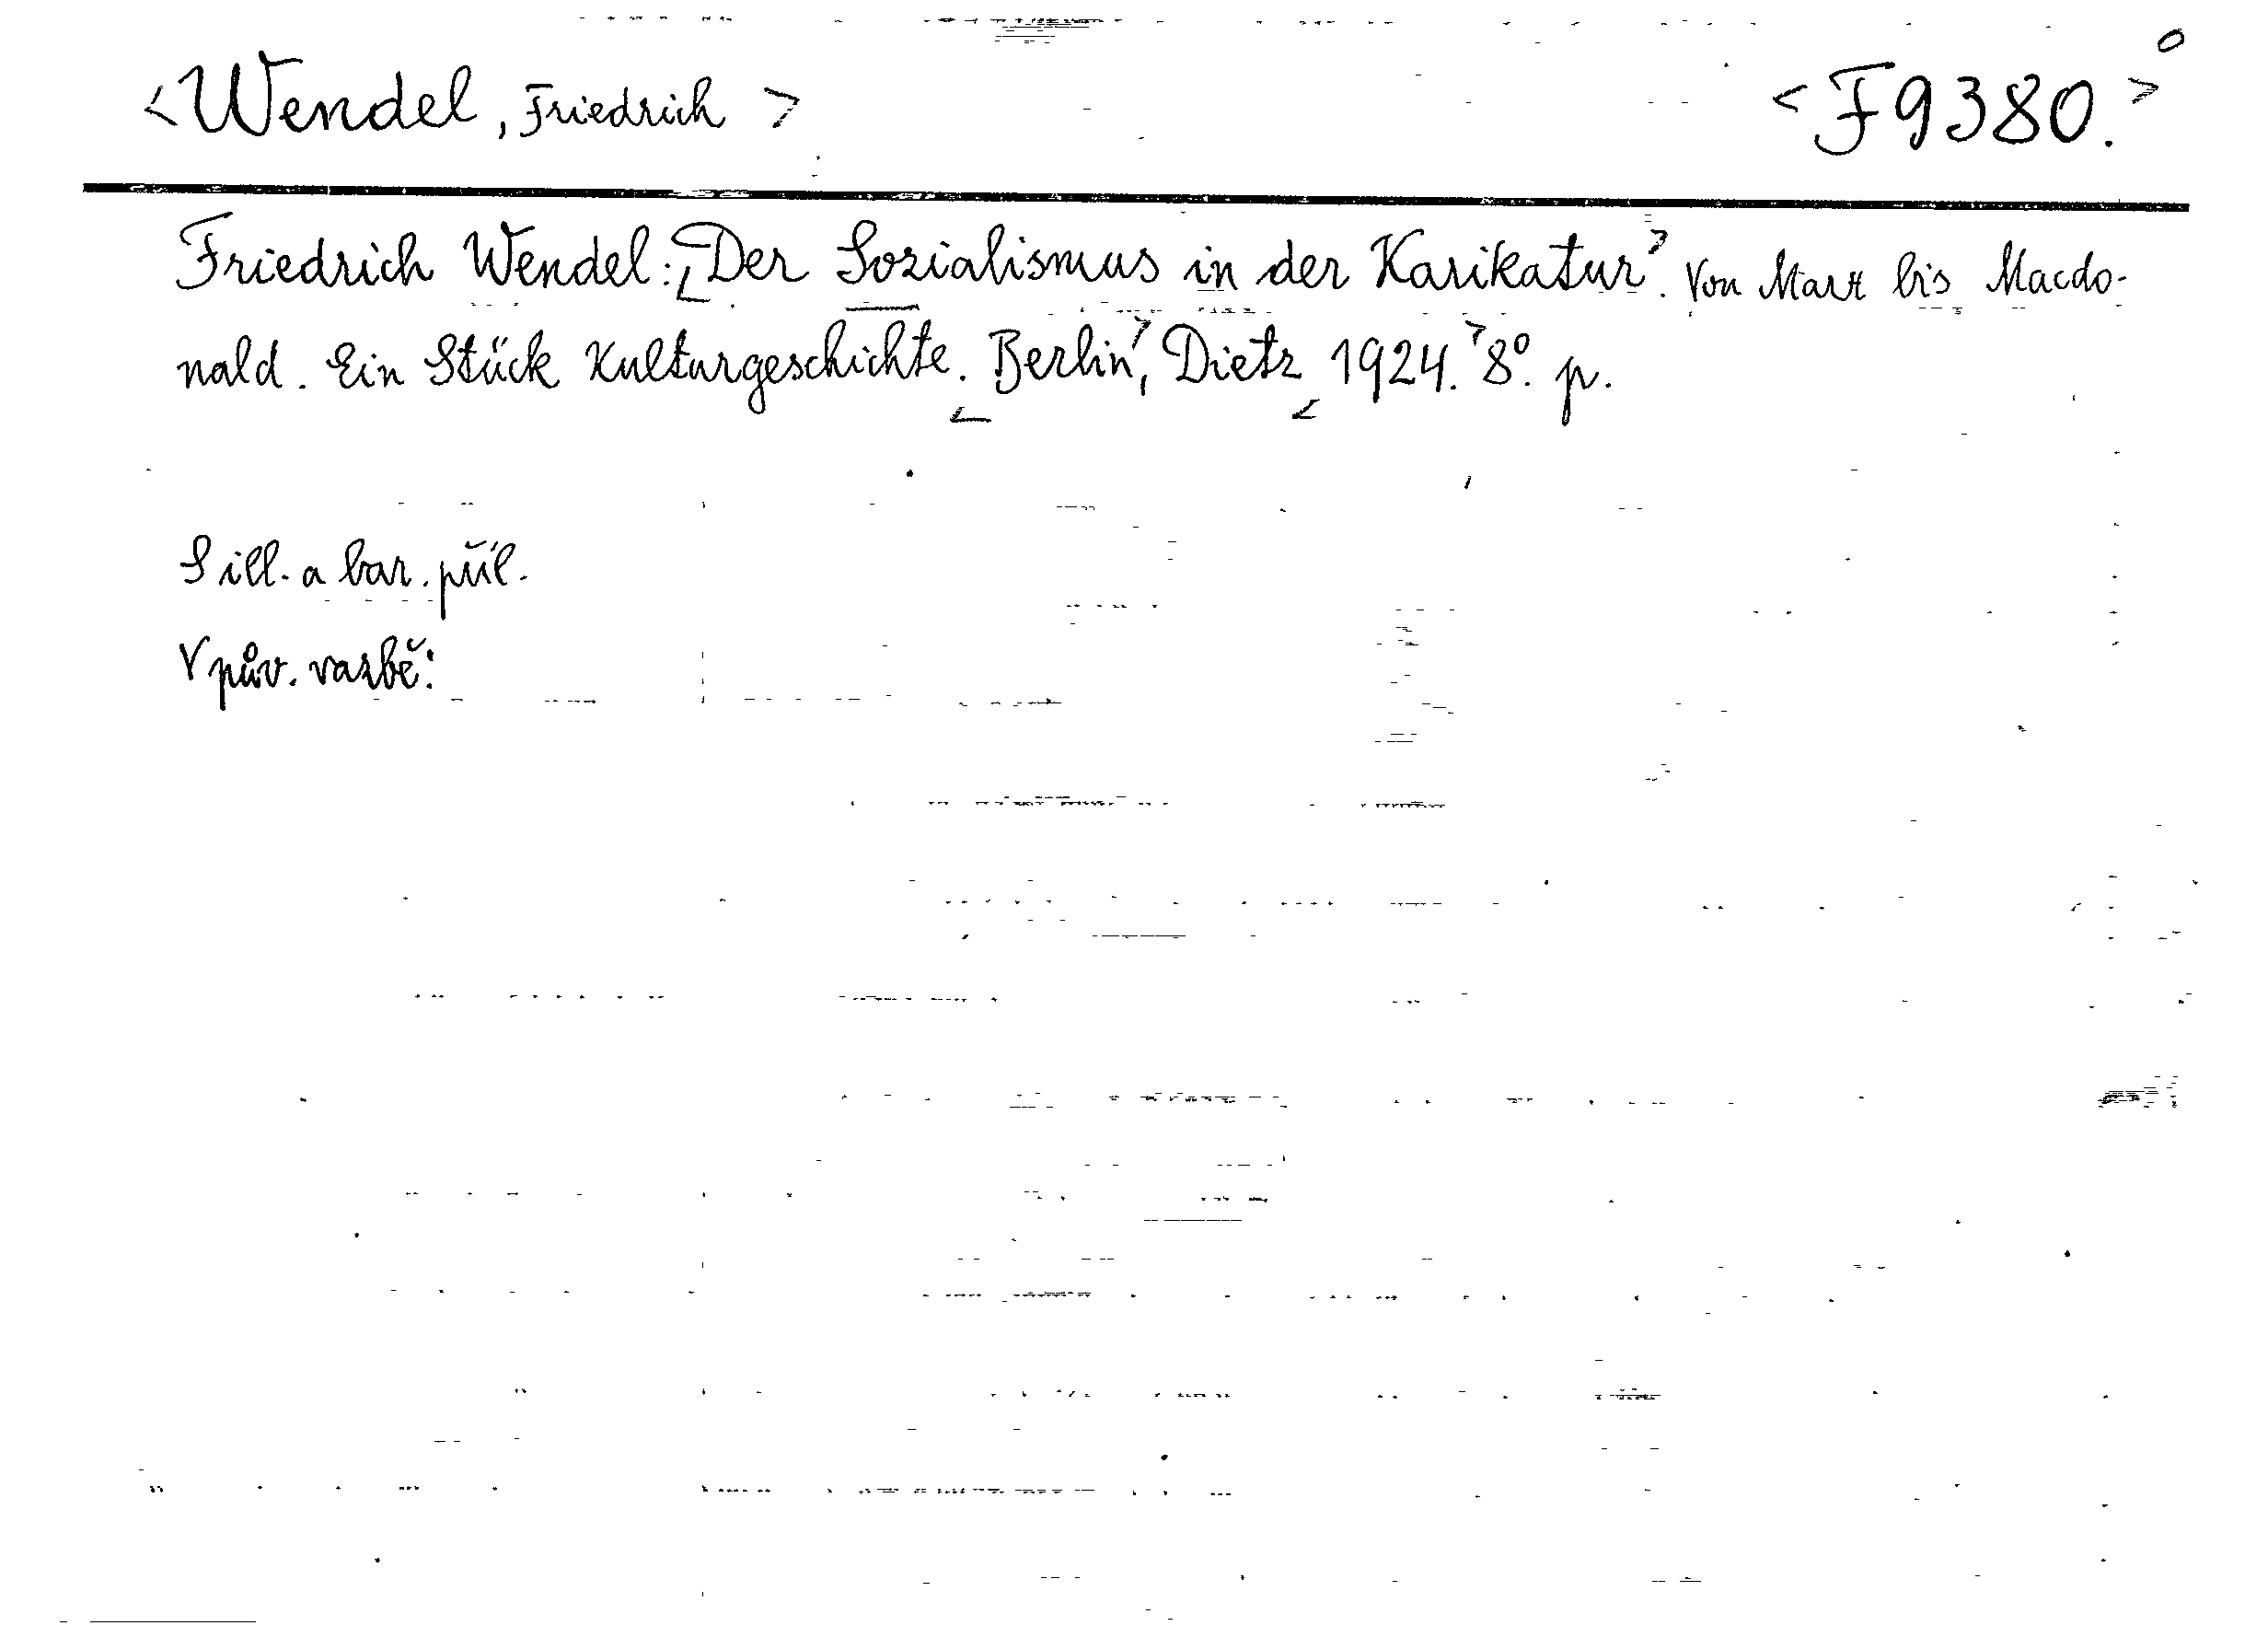 <Wendel, Friedrich> <F 9380.> o
Friedrich Wendel: <Der Sozialismus in der Karikatur>. Von Marx bis Macdo-
nald. Ein Stück Kulturgeschichte. <Berlin>, Dietz <1924.> 8°. p.
S ill. a bar. příl.
V pův. vazbě: